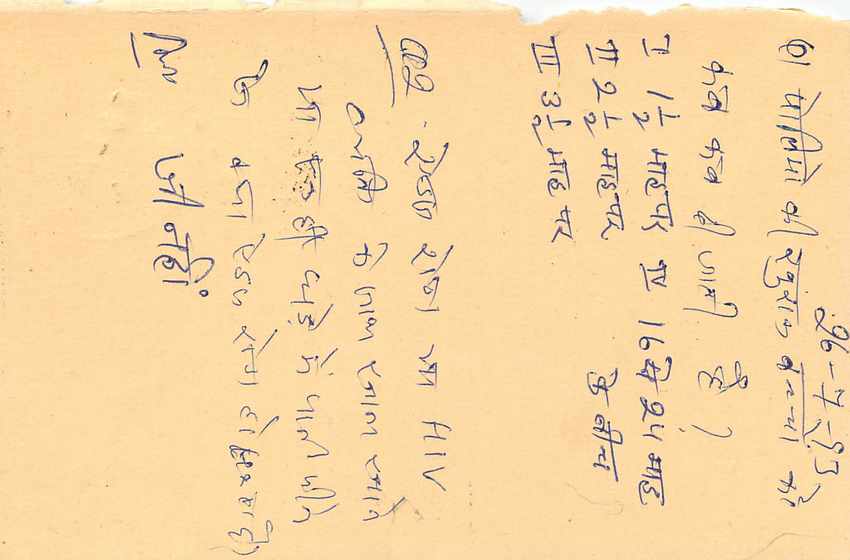 26-7-93
Q) पोलियो की खुराक बच्चों को
कब कब दी जाती है?
I 1½ माह पर IV 16 से 24 माह
II 2½ माह पर के बीच
III 3½ माह पर
Q2. एड्स रोगी या HIV
व्यक्ति के साथ स्नान करने
या एक ही घड़े से पानी पीने
से क्या एड्स रोग हो सकता है?
उत्तर जी नहीं